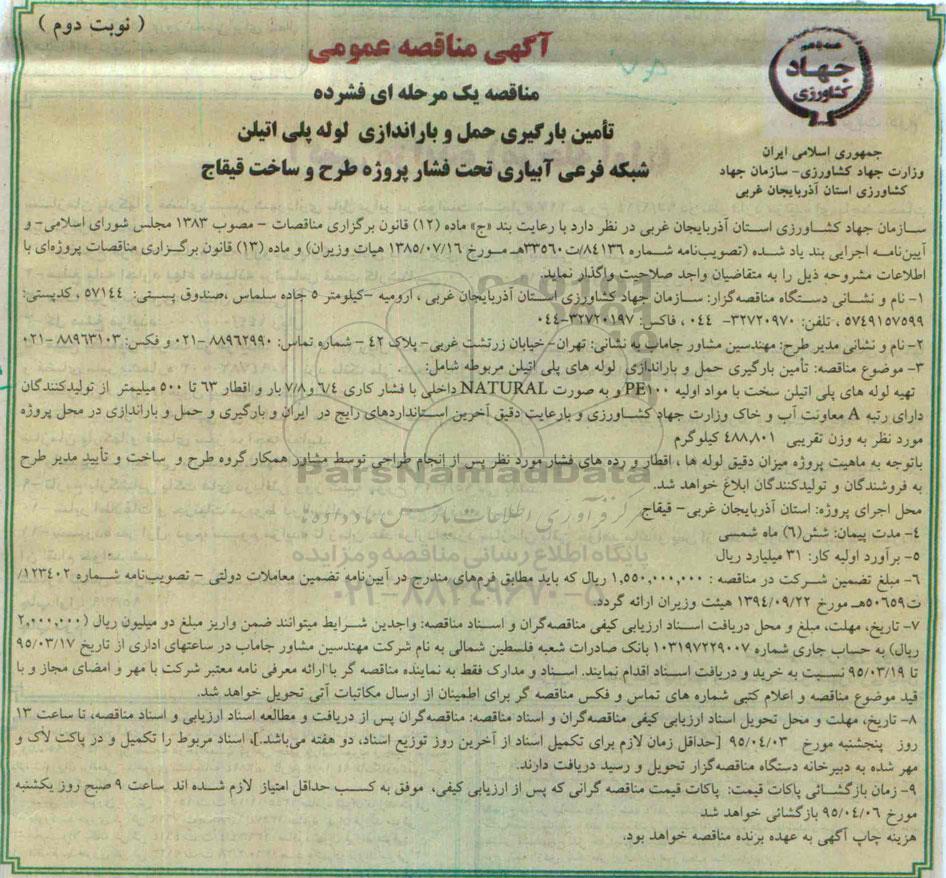 ( نوبت دوم )
آگهی مناقصه عمومی
مناقصه یک مرحله ای فشرده
تأمین بارگیری حمل و باراندازی لوله پلی اتیلن
شبکه فرعی آبیاری تحت فشار پروژه طرح و ساخت قیقاج
جهاد
کشاورزی
جمهوری اسلامی ایران
وزارت جهاد کشاورزی- سازمان جهاد
کشاورزی استان آذربایجان غربی
سازمان جهاد کشاورزی استان آذربایجان غربی در نظر دارد با رعایت بند «ج» ماده (۱۲) قانون برگزاری مناقصات – مصوب ۱۳۸۳ مجلس شورای اسلامی- و
آیین‌نامه اجرایی بند یاد شده (تصویب‌نامه شماره ۸۴۱۳۶/ت۳۳۵۶۰هـ مورخ ۱۳۸۵/۰۷/۱۶ هیات وزیران) و ماده (۱۳) قانون برگزاری مناقصات پروژه‌ای با
اطلاعات مشروحه ذیل را به متقاضیان واجد صلاحیت واگذار نماید.
۱- نام و نشانی دستگاه مناقصه‌گزار: سازمان جهاد کشاورزی استان آذربایجان غربی ، ارومیه –کیلومتر ۵ جاده سلماس ،صندوق پستی: ۵۷۱۴۴ ، کدپستی:
۵۷۴۹۱۵۷۵۹۹ ، تلفن: ۳۲۷۲۰۹۷۰- ۰۴۴ ، فاکس: ۳۲۷۲۰۱۹۷-۰۴۴
۲- نام و نشانی مدیر طرح: مهندسین مشاور جاماب به نشانی: تهران- خیابان زرتشت غربی- پلاک ۴۲ – شماره تماس: ۸۸۹۶۲۹۹۰ -۰۲۱ و فکس: ۸۸۹۶۳۱۰۳ -۰۲۱
۳- موضوع مناقصه: تأمین بارگیری حمل و باراندازی لوله های پلی اتیلن مربوطه شامل:
تهیه لوله های پلی اتیلن سخت با مواد اولیه PE۱۰۰ و به صورت NATURAL داخلی با فشار کاری ۶/۴ و ۷/۸ بار و اقطار ۶۳ تا ۵۰۰ میلیمتر از تولیدکنندگان
دارای رتبه A معاونت آب و خاک وزارت جهاد کشاورزی و بارعایت دقیق آخرین استانداردهای رایج در ایران و بارگیری و حمل و باراندازی در محل پروژه
مورد نظر به وزن تقریبی ۴۸۸,۸۰۱ کیلوگرم
باتوجه به ماهیت پروژه میزان دقیق لوله ها ، اقطار و رده های فشار مورد نظر پس از انجام طراحی توسط مشاور همکار گروه طرح و ساخت و تأیید مدیر طرح
به فروشندگان و تولیدکنندگان ابلاغ خواهد شد.
محل اجرای پروژه: استان آذربایجان غربی– قیقاج
۴- مدت پیمان: شش(۶) ماه شمسی
۵- برآورد اولیه کار: ۳۱ میلیارد ریال
۶- مبلغ تضمین شرکت در مناقصه : ۱,۵۵۰,۰۰۰,۰۰۰ ریال که باید مطابق فرم‌های مندرج در آیین‌نامه تضمین معاملات دولتی – تصویب‌نامه شماره ۱۲۳۴۰۲/
ت۵۰۶۵۹هـ مورخ ۱۳۹۴/۰۹/۲۲ هیئت وزیران ارائه گردد.
۷- تاریخ، مهلت، مبلغ و محل دریافت اسناد ارزیابی کیفی مناقصه‌گران و اسناد مناقصه: واجدین شرایط میتوانند ضمن واریز مبلغ دو میلیون ریال (۲,۰۰۰,۰۰۰
ریال) به حساب جاری شماره ۱۰۳۱۹۷۲۲۹۰۰۷ بانک صادرات شعبه فلسطین شمالی به نام شرکت مهندسین مشاور جاماب در ساعتهای اداری از تاریخ ۹۵/۰۳/۱۷
تا ۹۵/۰۳/۱۹ نسبت به خرید و دریافت اسناد اقدام نمایند. اسناد و مدارک فقط به نماینده مناقصه گر با ارائه معرفی نامه معتبر شرکت با مهر و امضای مجاز و با
قید موضوع مناقصه و اعلام کتبی شماره های تماس و فکس مناقصه گر برای اطمینان از ارسال مکاتبات آتی تحویل خواهد شد.
۸- تاریخ، مهلت و محل تحویل اسناد ارزیابی کیفی مناقصه‌گران و اسناد مناقصه: مناقصه‌گران پس از دریافت و مطالعه اسناد ارزیابی و اسناد مناقصه، تا ساعت ۱۳
روز پنجشنبه مورخ ۹۵/۰۴/۰۳ [حداقل زمان لازم برای تکمیل اسناد از آخرین روز توزیع اسناد، دو هفته می‌باشد.]، اسناد مربوط را تکمیل و در پاکت لاک و
مهر شده به دبیرخانه دستگاه مناقصه‌گزار تحویل و رسید دریافت دارند.
۹- زمان بازگشائی پاکات قیمت: پاکات قیمت مناقصه گرانی که پس از ارزیابی کیفی، موفق به کسب حداقل امتیاز لازم شده اند ساعت ۹ صبح روز یکشنبه
مورخ ۹۵/۰۴/۰۶ بازگشائی خواهد شد
هزینه چاپ آگهی به عهده برنده مناقصه خواهد بود.
ParsNamadData
پایگاه اطلاع رسانی مناقصه و مزایده
۰۲۱-۸۸۳۴۹۶۷۰-۵